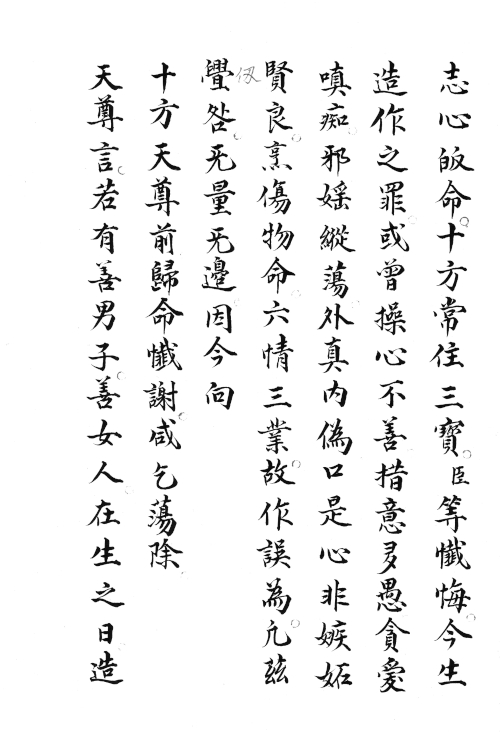 志心皈命十方常住三寶臣等懺悔今生
造作之罪或曾操心不善措意多愚貪愛
嗔痴邪婬縱蕩外真内偽口是心非嫉妬
賢良烹傷物命六情三業故作誤為凢兹
舋咎旡量旡邉因今向
十方天尊前歸命懺謝咸乞蕩除
天尊言若有善男子善女人在生之日造